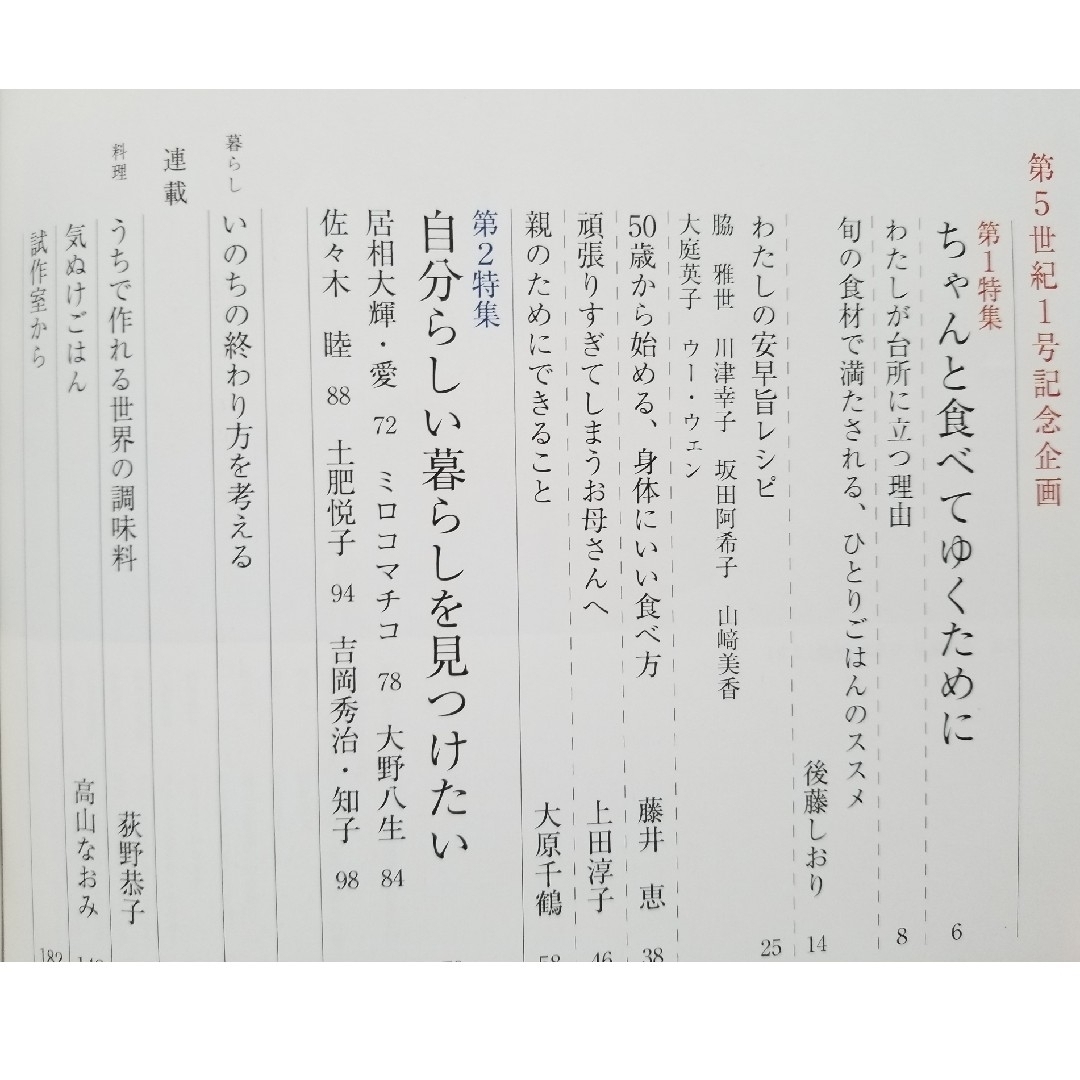 第5世紀1号記念企画
第1特集
ちゃんと食べてゆくために 6
わたしが台所に立つ理由 8
旬の食材で満たされる、ひとりごはんのススメ
後藤しおり 14
わたしの安早旨レシピ 25
脇 雅世 川津幸子 坂田阿希子 山﨑美香
大庭英子 ウー・ウェン
50歳から始める、身体にいい食べ方 藤井 恵 38
頑張りすぎてしまうお母さんへ 上田淳子 46
親のためにできること 大原千鶴 58
第2特集
自分らしい暮らしを見つけたい
居相大輝・愛 72 ミロコマチコ 78 大野八生 84
佐々木 睦 88 土肥悦子 94 吉岡秀治・知子 98
暮らし いのちの終わり方を考える
連載
料理 うちで作れる世界の調味料 荻野恭子
気ぬけごはん 高山なおみ
試作室から 182